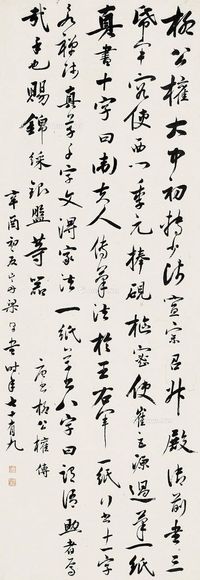 柳公權大中初轉少師宣宗召升殿御前書三
紙軍容使西門季元捧硯樞密使崔巨源過筆一紙
真書十字曰衛夫人傳筆法於王右軍一紙行書十一字
永禪師真草千字文得家法一紙草書八字曰謂語助者焉
哉乎也賜錦綵銀盤等器
唐書柳公權傳
辛酉初夏山舟梁同書時年七十有九